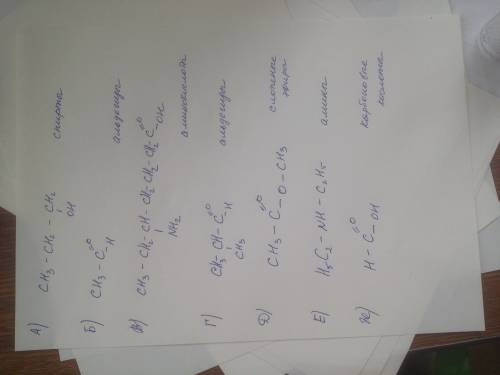 А) CH₃ - CH₂ - CH₂ спирты
OH
Б) CH₃ - C =O - H альдегиды
В) CH₃ - CH₂ - CH - CH₂ - CH₂ - CH₂ - C =O - OH
NH₂ аминокислоты
Г) CH₃ - CH - C =O - H альдегиды
CH₃
Д) CH₃ - C =O - O - CH₃ сложные эфиры
Е) H₅C₂ - NH - C₂H₅ амины
Ж) H - C =O - OH карбоновые кислоты